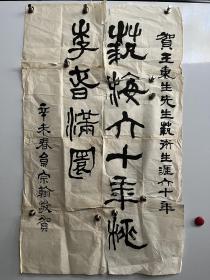 賀王東生先生藝術生涯六十年
藝海六十年桃
李香滿園
辛未春宗翰敬賀